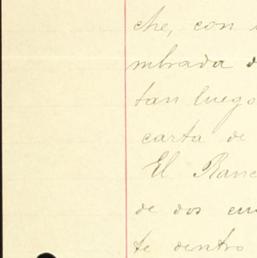 che, con
mbrada d
tan luego
carta de
El Ranc
de dos em
te dentro